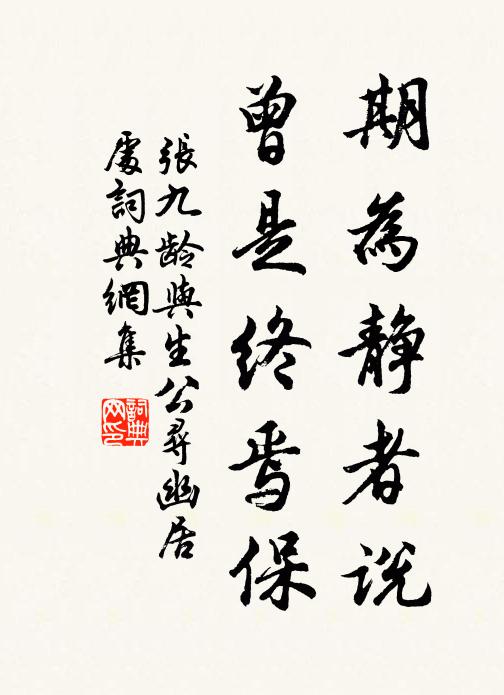 期為靜者說
曾是終焉保
張九齡與生公尋幽居
處詞典網集
詞典
網印